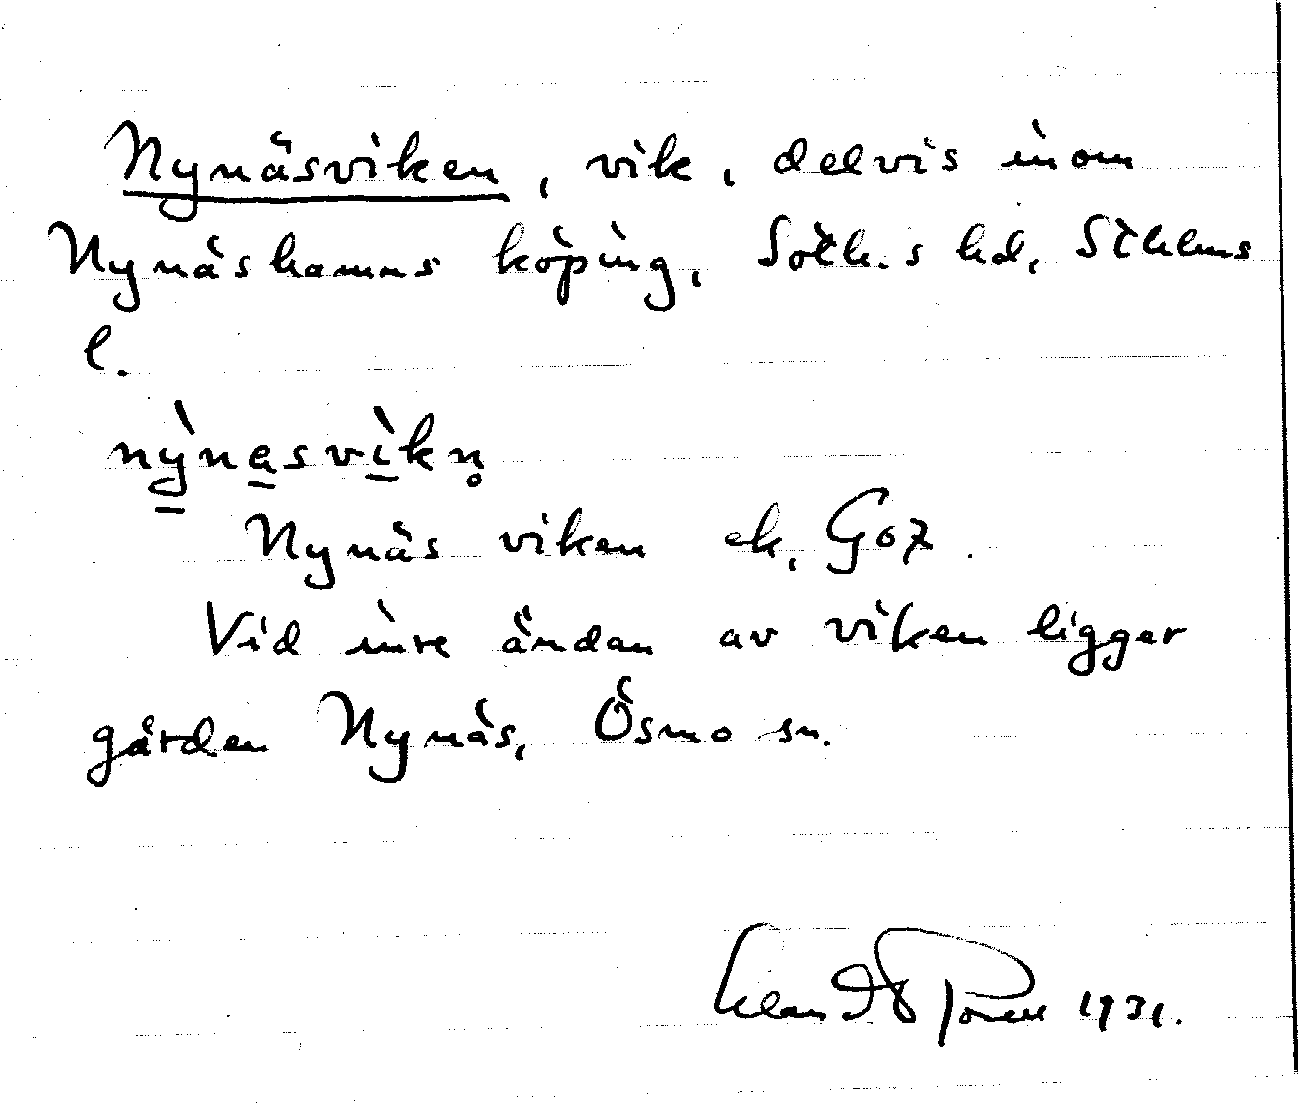 Nynäsviken, vik, delvis inom
Nynäshamns köping, Soth.s hd, Sthlms
l.
nỳnasvìkn̥
Nynäs viken ek. G07.
Vid inre ändan av viken ligger
gården Nynäs, Ösmo sn.
1931.